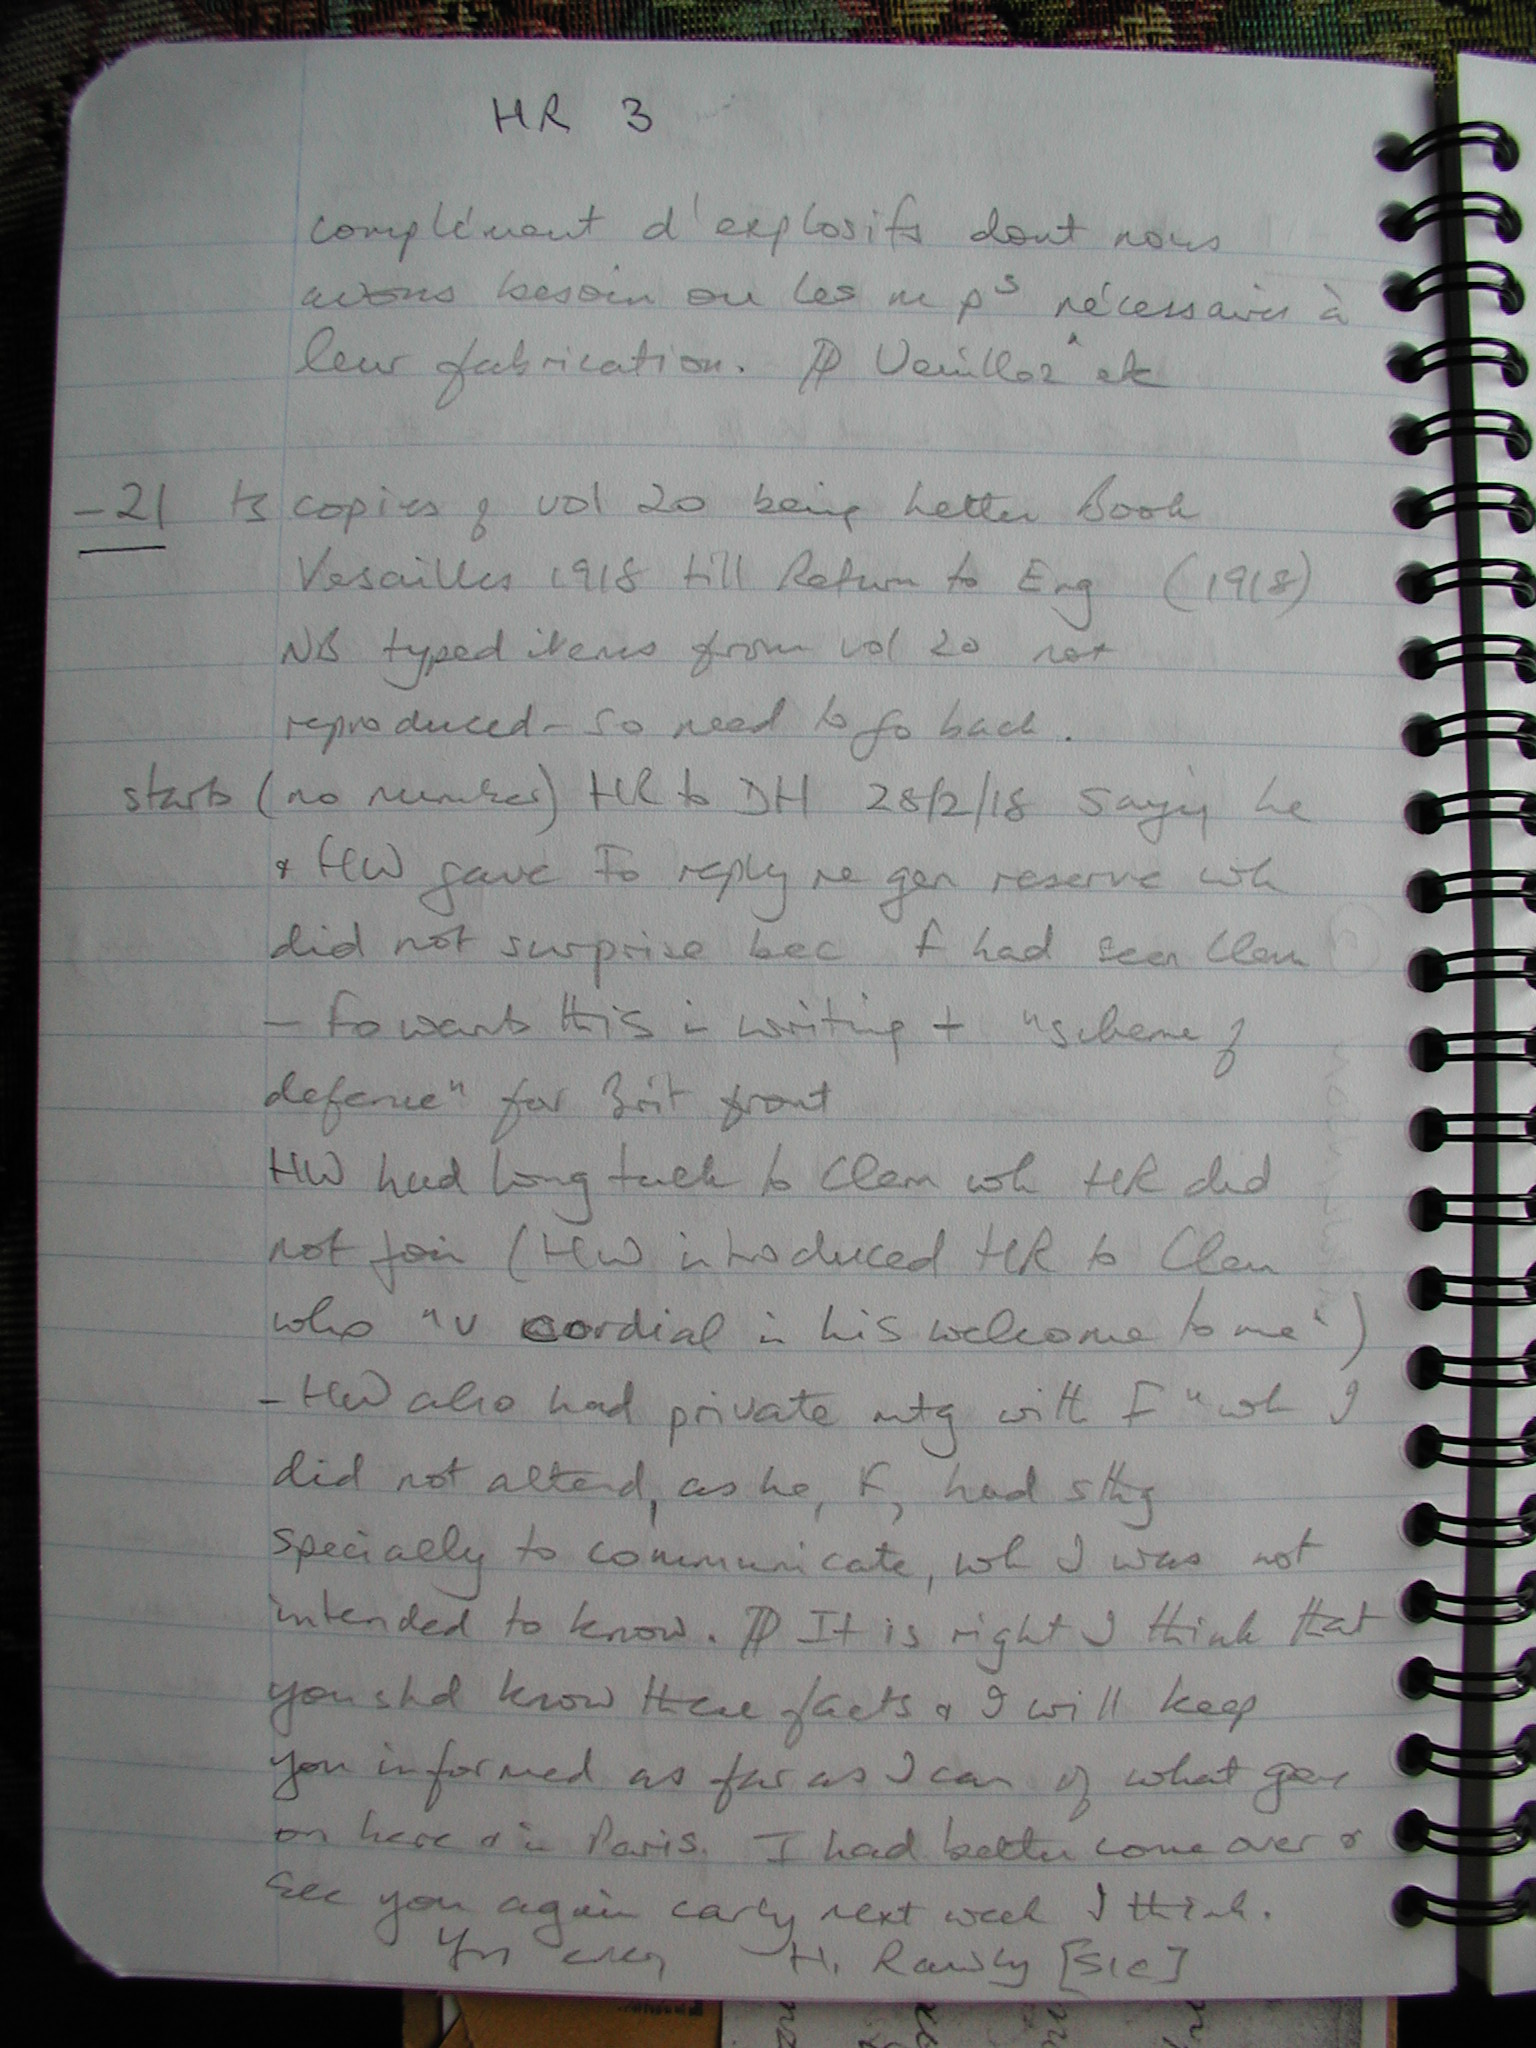 HR 3
complément d'explosifs dont nous
avons besoin ou les m ps nécessaires à
leur fabrication. ⁋ Veuillez etc
-21 ts copies of vol 20 being Letter Book
Versailles 1918 till Return to Eng (1918)
NB typed items from vol 20 not
reproduced - so need to go back.
starts (no number) HR to DH 28/2/18 saying he
& HW gave Fo reply re gen reserve wh
did not surprise bec F had seen Clem
- Fo wants this in writing + "scheme of
defence" for Brit front
HW had long talk to Clem wh HR did
not join (HW introduced HR to Clem
who "v cordial in his welcome to me")
- HW also had private mtg with F "wh I
did not attend, as he, F, had sthg
specially to communicate, wh I was not
intended to know. ⁋ It is right I think that
you shd know these facts & I will keep
you informed as far as I can of what goes
on here & in Paris. I had better come over &
see you again early next week I think.
Yrs ever H. Rawly [sic]